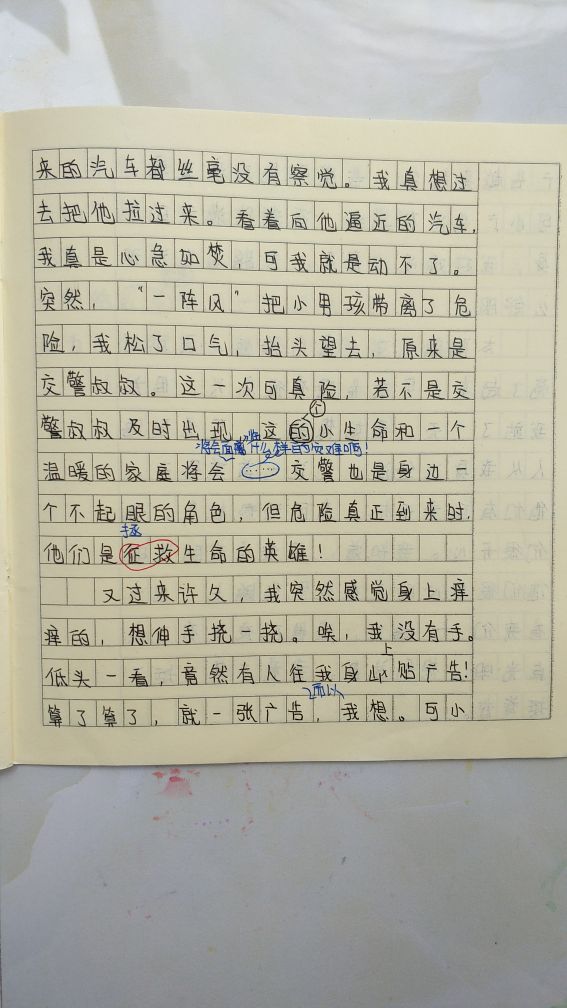 来的汽车都丝毫没有察觉。我真想过
去把他拉过来。看着向他逼近的汽车,
我真是心急如焚,可我就是动不了。
突然,“一阵风”把小男孩带离了危
险,我松了口气,抬头望去,原来是
交警叔叔。这一次可真险,若不是交
个
警叔叔及时出现,这的小生命和一个
将会面临什么样的灾难啊!
温暖的家庭将会……交警也是身边一
个不起眼的角色,但危险真正到来时,
拯
他们是征救生命的英雄!
又过来许久,我突然感觉身上痒
痒的,想伸手挠一挠。唉,我没有手。
上
低头一看,竟然有人往我身贴广告!
而以
算了算了,就一张广告,我想。可小